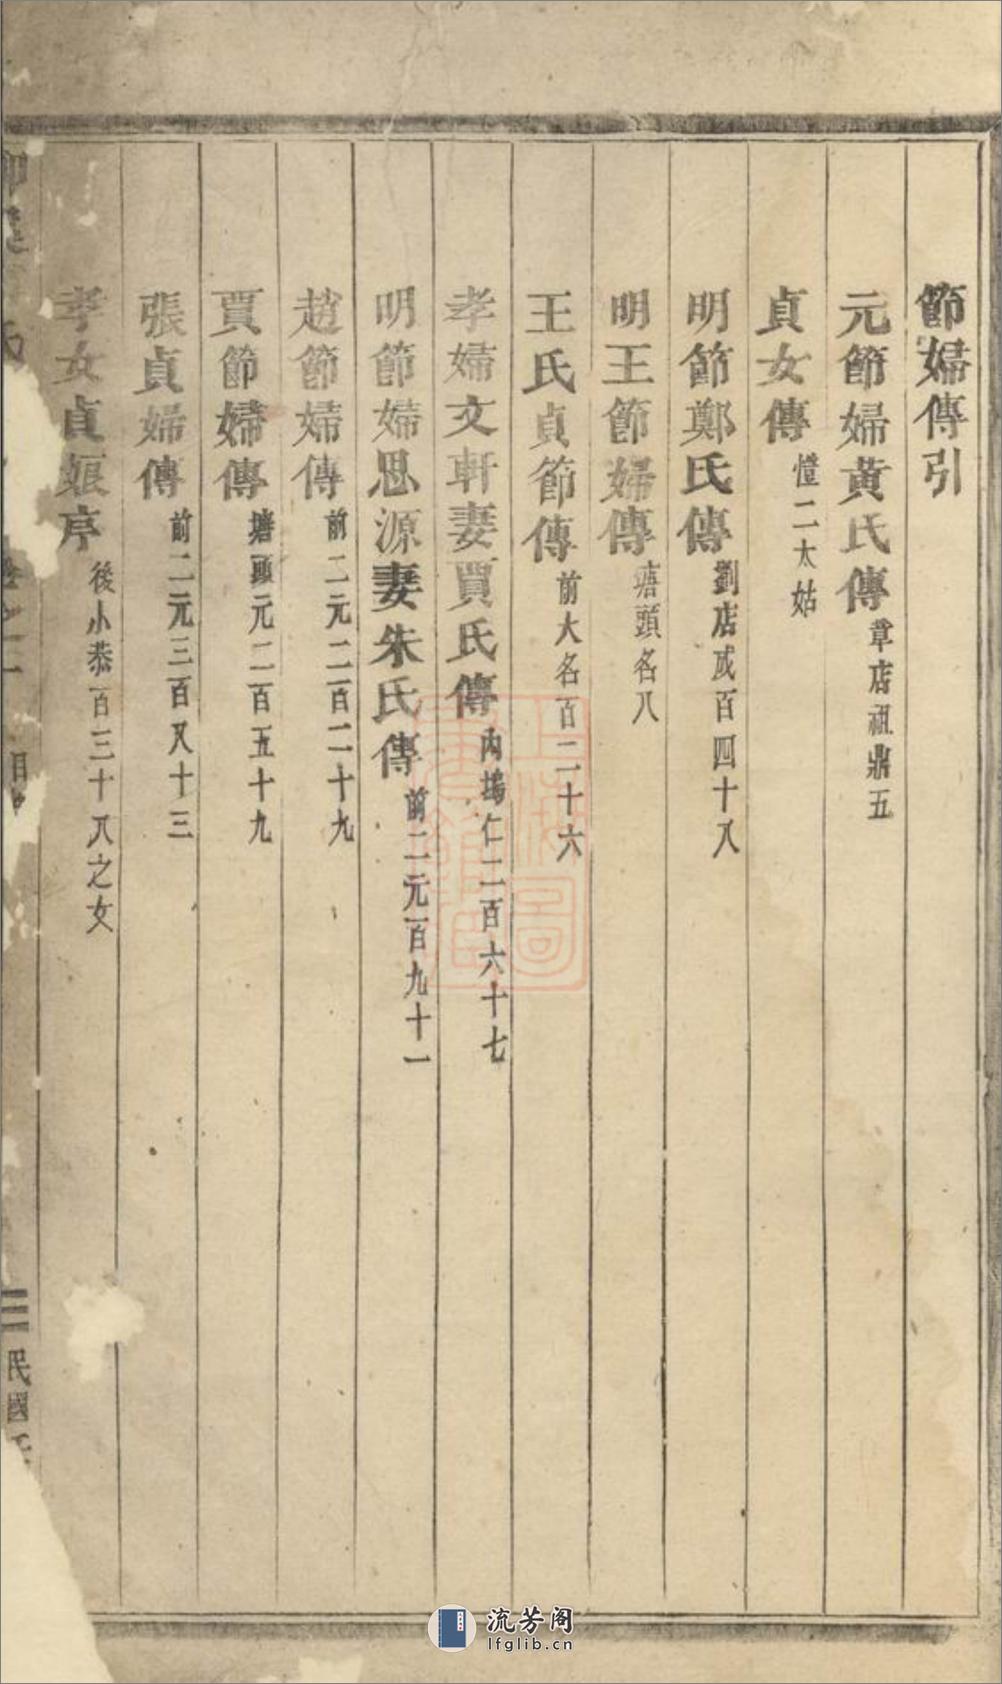 節婦傳引
元節婦黄氏傳 章店祖鼎五
貞女傳 憆二太姑
明節鄭氏傳 劉店成百四十八
明王節婦傳 塘頭名八
王氏貞節傳 前大名百二十六
孝婦文軒妻賈氏傳 内塢仁二百六十七
明節婦思源妻朱氏傳 前二元百九十一
趙節婦傳 前二元二百二十九
賈節婦傳 塘頭元二百五十九
張貞婦傳 前二元三百又十三
孝女貞娘序 後小恭百三十八之女
氏 卷之二 目 三 民國
上海圖書館藏
流芳阁
lfglib.cn